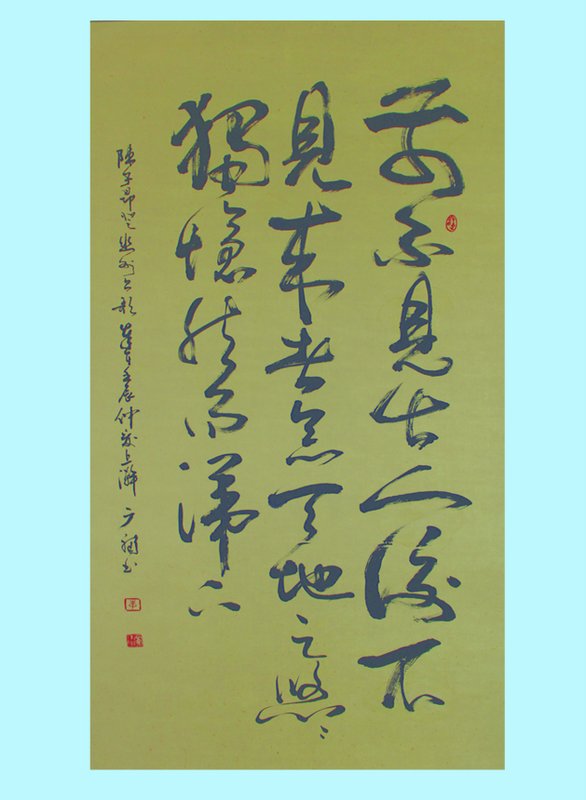 前不見古人後不
見来者念天地之悠〻
獨愴然而涕下
陳子昂登幽州台歌 壬辰仲夏上澣 書